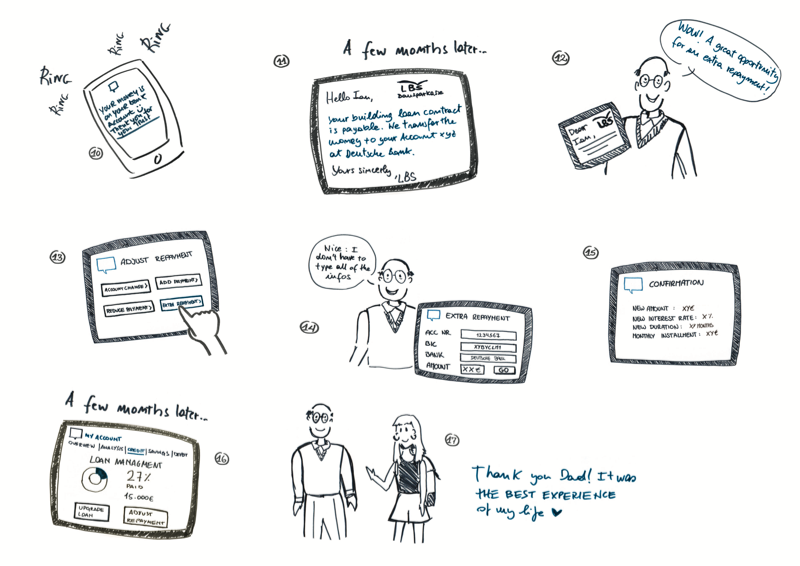 RING
RING
RING
RING
RING
YOUR MONEY IS
ON YOUR BANK
ACCOUNT :)
THANK YOU FOR
YOU TRUST
10
A few months later...
11
LBS
Bausparkasse
Hello Ian,
your building loan contract
is payable. We transfer the
money to your Account xyz
at Deutsche Bank.
Yours sincerely, LBS
12
WOW! A great opportunity
for an extra repayment!
LBS
Dear
Ian,
13
ADJUST REPAYMENT
ACCOUNT CHANGE>
ADD PAYMENT>
REDUCE PAYMENT>
EXTRA REPAYMENT>
14
Nice: I
don't have to
type all of the
infos
EXTRA REPAYMENT
ACC NR. 1234567
BIC
BANK DEUTSCHE BANK
AMOUNT XX€ GO
15
CONFIRMATION
NEW AMOUNT: XY€
NEW INTEREST RATE: X%
NEW DURATION: XY MONTHS
MONTHLY INSTALLMENT: XY€
A few months later...
16
MY ACCOUNT
OVERVIEW | ANALYSIS | CREDIT | SAVINGS | DEPOT
LOAN MANAGMENT
27%
PAID
15.000€
UPGRADE
LOAN
ADJUST
REPAYMENT
17
Thank you Dad! It was
THE BEST EXPERIENCE
of my life ♥